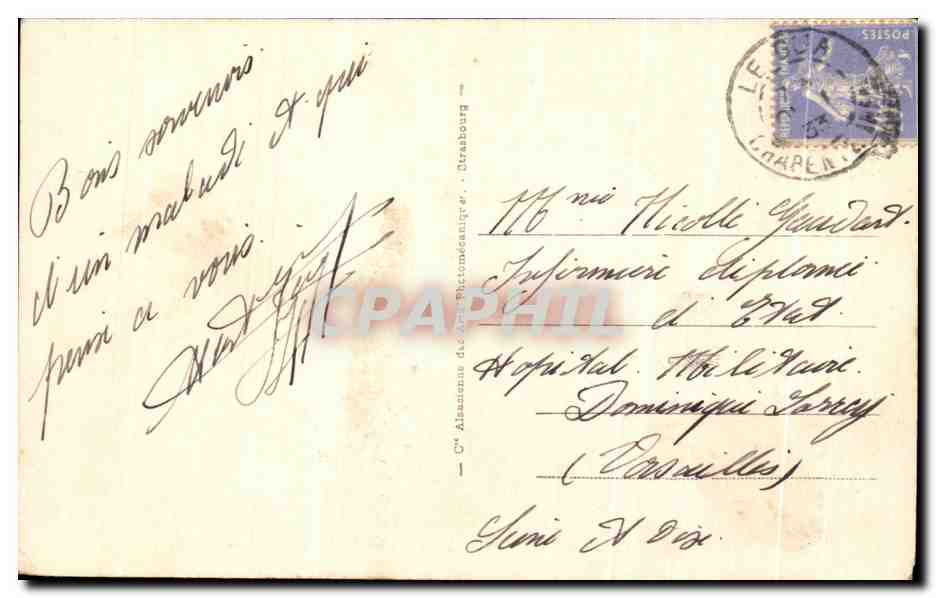 Bons souvenirs
d'un maladi et qui
pense a vous.
Cie Alsacienne des Arts Photomécaniques - Strasbourg
POSTES
CHARENTE
Mme Nicolle Gaudart
Infirmière diplomée
d'Etat.
Hopital Militaire.
Dominique Larrey
(Versailles)
Seine et Oise.
CPAPHIL